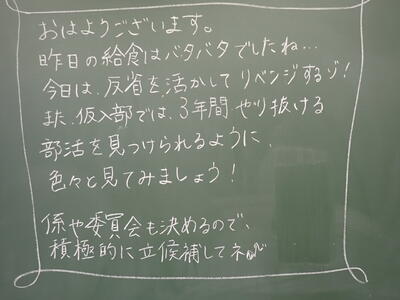 おはようございます。
昨日の給食はバタバタでしたね…
今日は、反省を活かしてリベンジするゾ!
また、仮入部では、3年間やり抜ける
部活を見つけられるように、
色々と見てみましょう!
係や委員会も決めるので、
積極的に立候補してネ